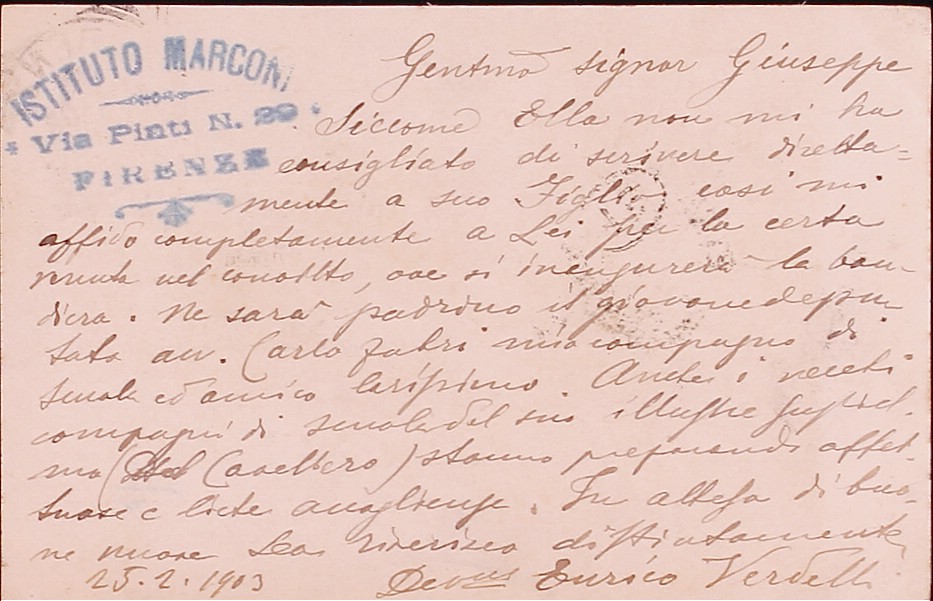 ISTITUTO MARCONI
Via Pinti N. 29
FIRENZE
Gentmo Signor Giuseppe
Siccome Ella non mi ha
consigliato di scrivere diretta=
mente a suo Figlio così mi
affido completamente a Lei per la certa
venuta nel convitto, ove si inaugurerà la ban-
diera. Ne sarà padrino il giovane depu
tato avv. Carlo fabri mio compagno di
scuola ed amico carissimo. Anche i vecchi
compagni di scuola del suo illustre Gugliel.
mo (Del Cavallero) stanno preparando affet-
tuose e liete accoglienze. In attesa di buo-
ne nuove La riverisco distintamente
25.2.1903 Devmo Enrico Verdelli